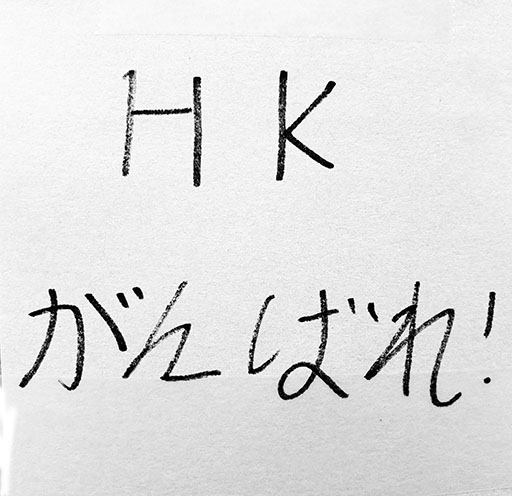 H K
がんばれ!